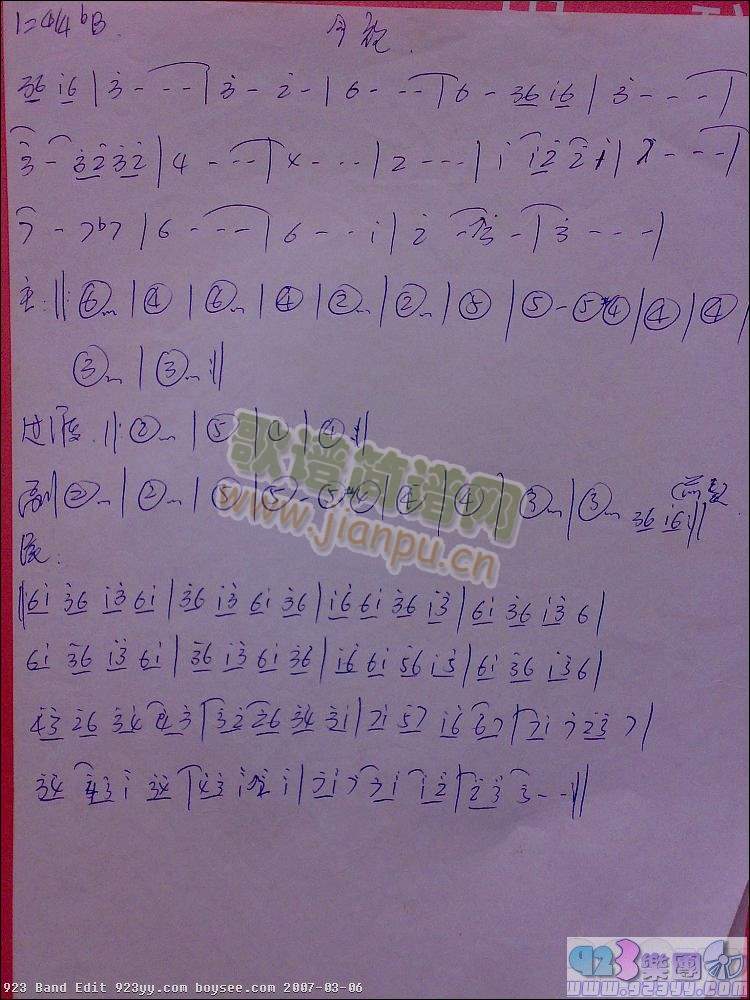 1=4/4 ♭B 今夜
36 i6 | 3 - - - | 3 - 2 - | 6 - - - | 6 - 36 i6 | 3 - - - |
3 - 3232 | 4 - - - | 4 - - - | 2 - - - | i i2 2i | 7 - - - |
7 - 7♭7 | 6 - - - | 6 - - i | 2 - 3 - | 3 - - - |
主: ‖: ⑥m | ④ | ⑥m | ④ | ②m | ②m | ⑤ | ⑤ - ⑤#④ | ④ | ④ |
③m | ③m :‖
过渡. ‖: ②m | ⑤ | ④ :‖
②m | ②m | ⑤ | ⑤ - ⑤ | ④ | ④ | ③m | ③m 36 i6i ‖
‖ 6i 36 i3 6i | 36 i3 6i 36 | i6 6i 36 i3 | 6i 36 i3 6 |
6i 36 i3 6i | 36 i3 6i 36 | i6 6i 56 i5 | 6i 36 i36 |
43 26 34 43 | 32 26 34 3i | 7i 57 i6 67 | 7i 7 23 7 |
34 43 i 34 | 43 i2 i | 7i 7 7i i2 | 23 3 - - ‖
歌谱简谱网
www.jianpu.cn
923樂團
www.923yy.com
923 Band Edit 923yy.com boysee.com 2007-03-06